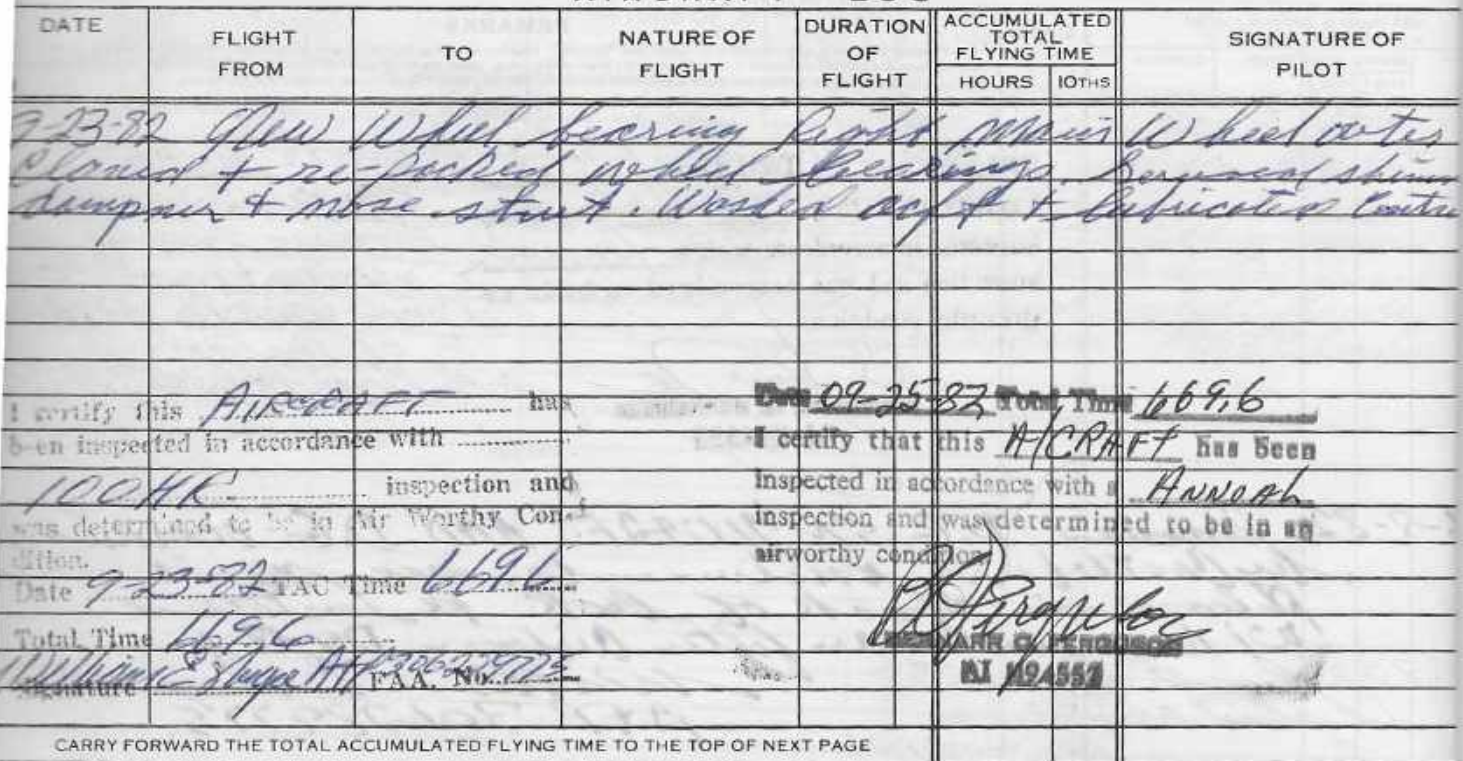 DATE FLIGHT FROM TO NATURE OF FLIGHT DURATION OF FLIGHT ACCUMULATED TOTAL FLYING TIME HOURS 10THS SIGNATURE OF PILOT
9-23-82 New Wheel bearing Right main Wheel outer
Cleaned + re-packed wheel bearings. Serviced
dampner + nose strut. Washed acft + lubricated
I certify this AIRCRAFT has
been inspected in accordance with
100 HR inspection and
was determined to be in Air Worthy Con-
dition.
Date 9-23-82 TAC Time 669.6
Total Time 669.6
Signature William E FAA. No.
Date 09-25-82 Total Time 669.6
I certify that this A/CRAFT has been
inspected in accordance with a ANNUAL
inspection and was determined to be in an
airworthy condition
FERGUSON
CARRY FORWARD THE TOTAL ACCUMULATED FLYING TIME TO THE TOP OF NEXT PAGE